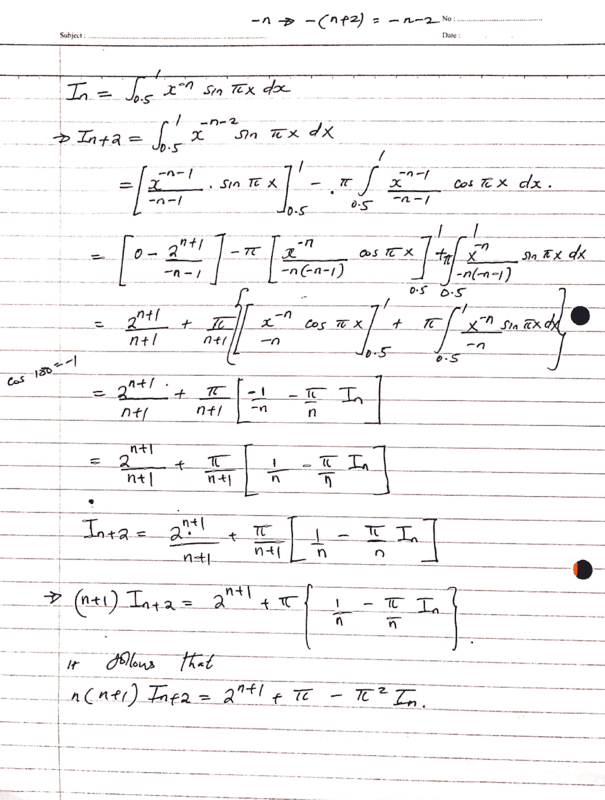 -n ⇒ -(n+2) = -n-2 No :
Subject : Date :
In = ∫_{0.5}^{1} x^{-n} sin πx dx
⇒ In+2 = ∫_{0.5}^{1} x^{-n-2} sin πx dx
= [x^{-n-1}/(-n-1) . sin πx]_{0.5}^{1} - . π ∫_{0.5}^{1} x^{-n-1}/(-n-1) cos πx dx.
= [0 - 2^{n+1}/(-n-1)] - π [x^{-n}/(-n(-n-1)) cos πx]_{0.5}^{1} + π ∫_{0.5}^{1} x^{-n}/(-n(-n-1)) sin πx dx
= 2^{n+1}/(n+1) + π/(n+1) {[x^{-n}/(-n) cos πx]_{0.5}^{1} + π ∫_{0.5}^{1} x^{-n}/(-n) sin πx dx}
cos 180 = -1
= 2^{n+1}/(n+1) + π/(n+1) [-1/(-n) - π/n In]
= 2^{n+1}/(n+1) + π/(n+1) [1/n - π/n In]
In+2 = 2^{n+1}/(n+1) + π/(n+1) [1/n - π/n In]
⇒ (n+1) In+2 = 2^{n+1} + π {1/n - π/n In}.
It follows that
n(n+1) In+2 = 2^{n+1} + π - π² In.